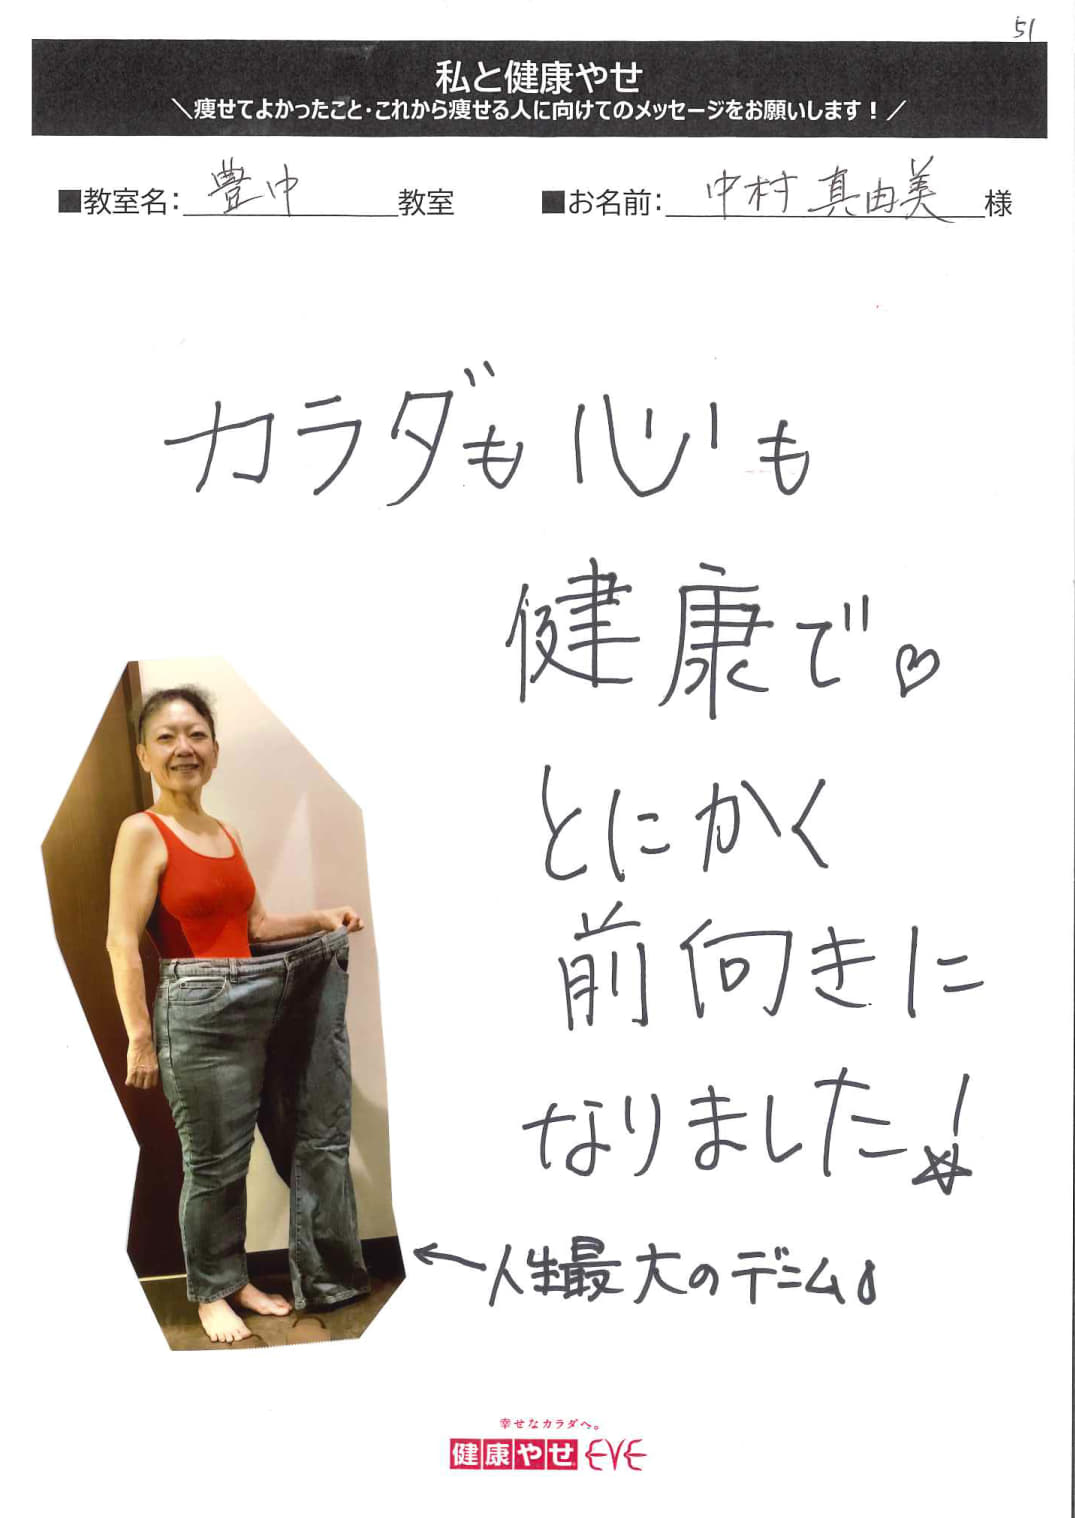 51
私と健康やせ
＼痩せてよかったこと・これから痩せる人に向けてのメッセージをお願いします！／
■教室名：豊中教室 ■お名前：中村 真由美様
カラダも心も
健康で♡
とにかく
前向きに
なりました！
←人生最大のデニム。
幸せなカラダへ。
健康やせ EVE